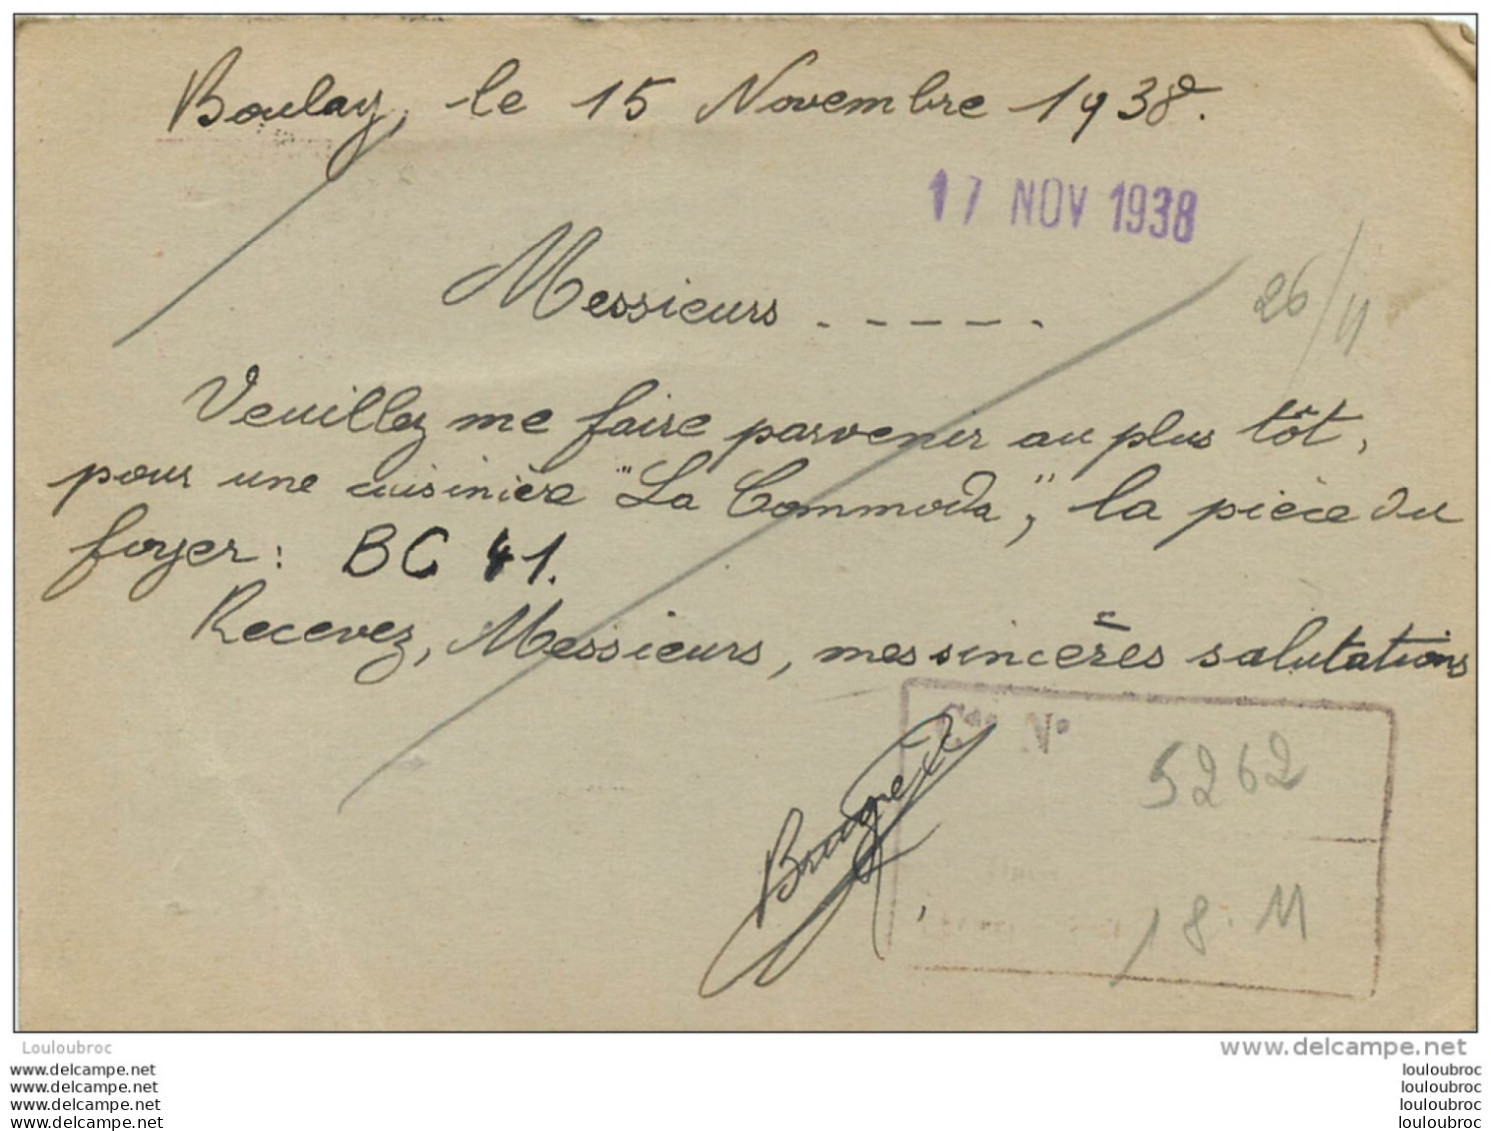 Boulay, le 15 Novembre 1938.
17 NOV 1938
Messieurs - - - - - .
26/11
Veuillez me faire parvenir au plus tôt,
pour une cuisinière "La Commoda", la pièce du
foyer : BC 41.
Recevez, Messieurs, mes sincères salutations
Cde No
5262
18.11
Louloubroc
www.delcampe.net
www.delcampe.net
www.delcampe.net
www.delcampe.net
www.delcampe.net
louloubroc
louloubroc
louloubroc
louloubroc